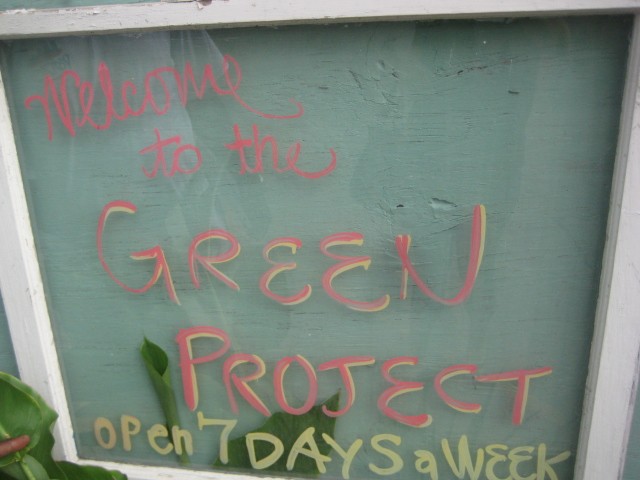 Welcome
to the
GREEN
PROJECT
OPEn 7 DAYS a WEEK